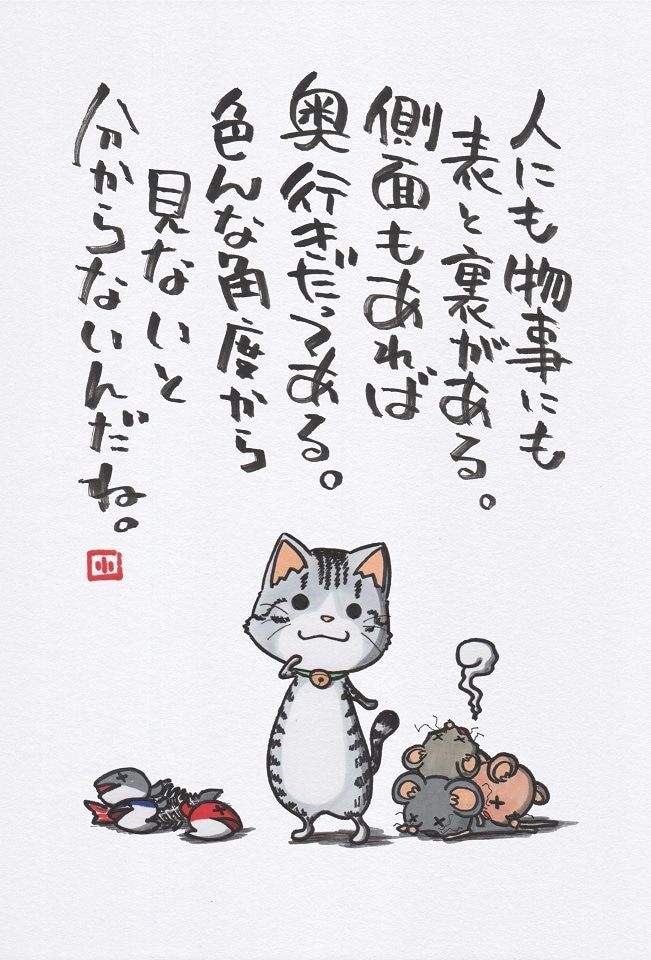 人にも物事にも
表と裏がある。
側面もあれば
奥行きだってある。
色んな角度から
見ないと
分からないんだね。
小